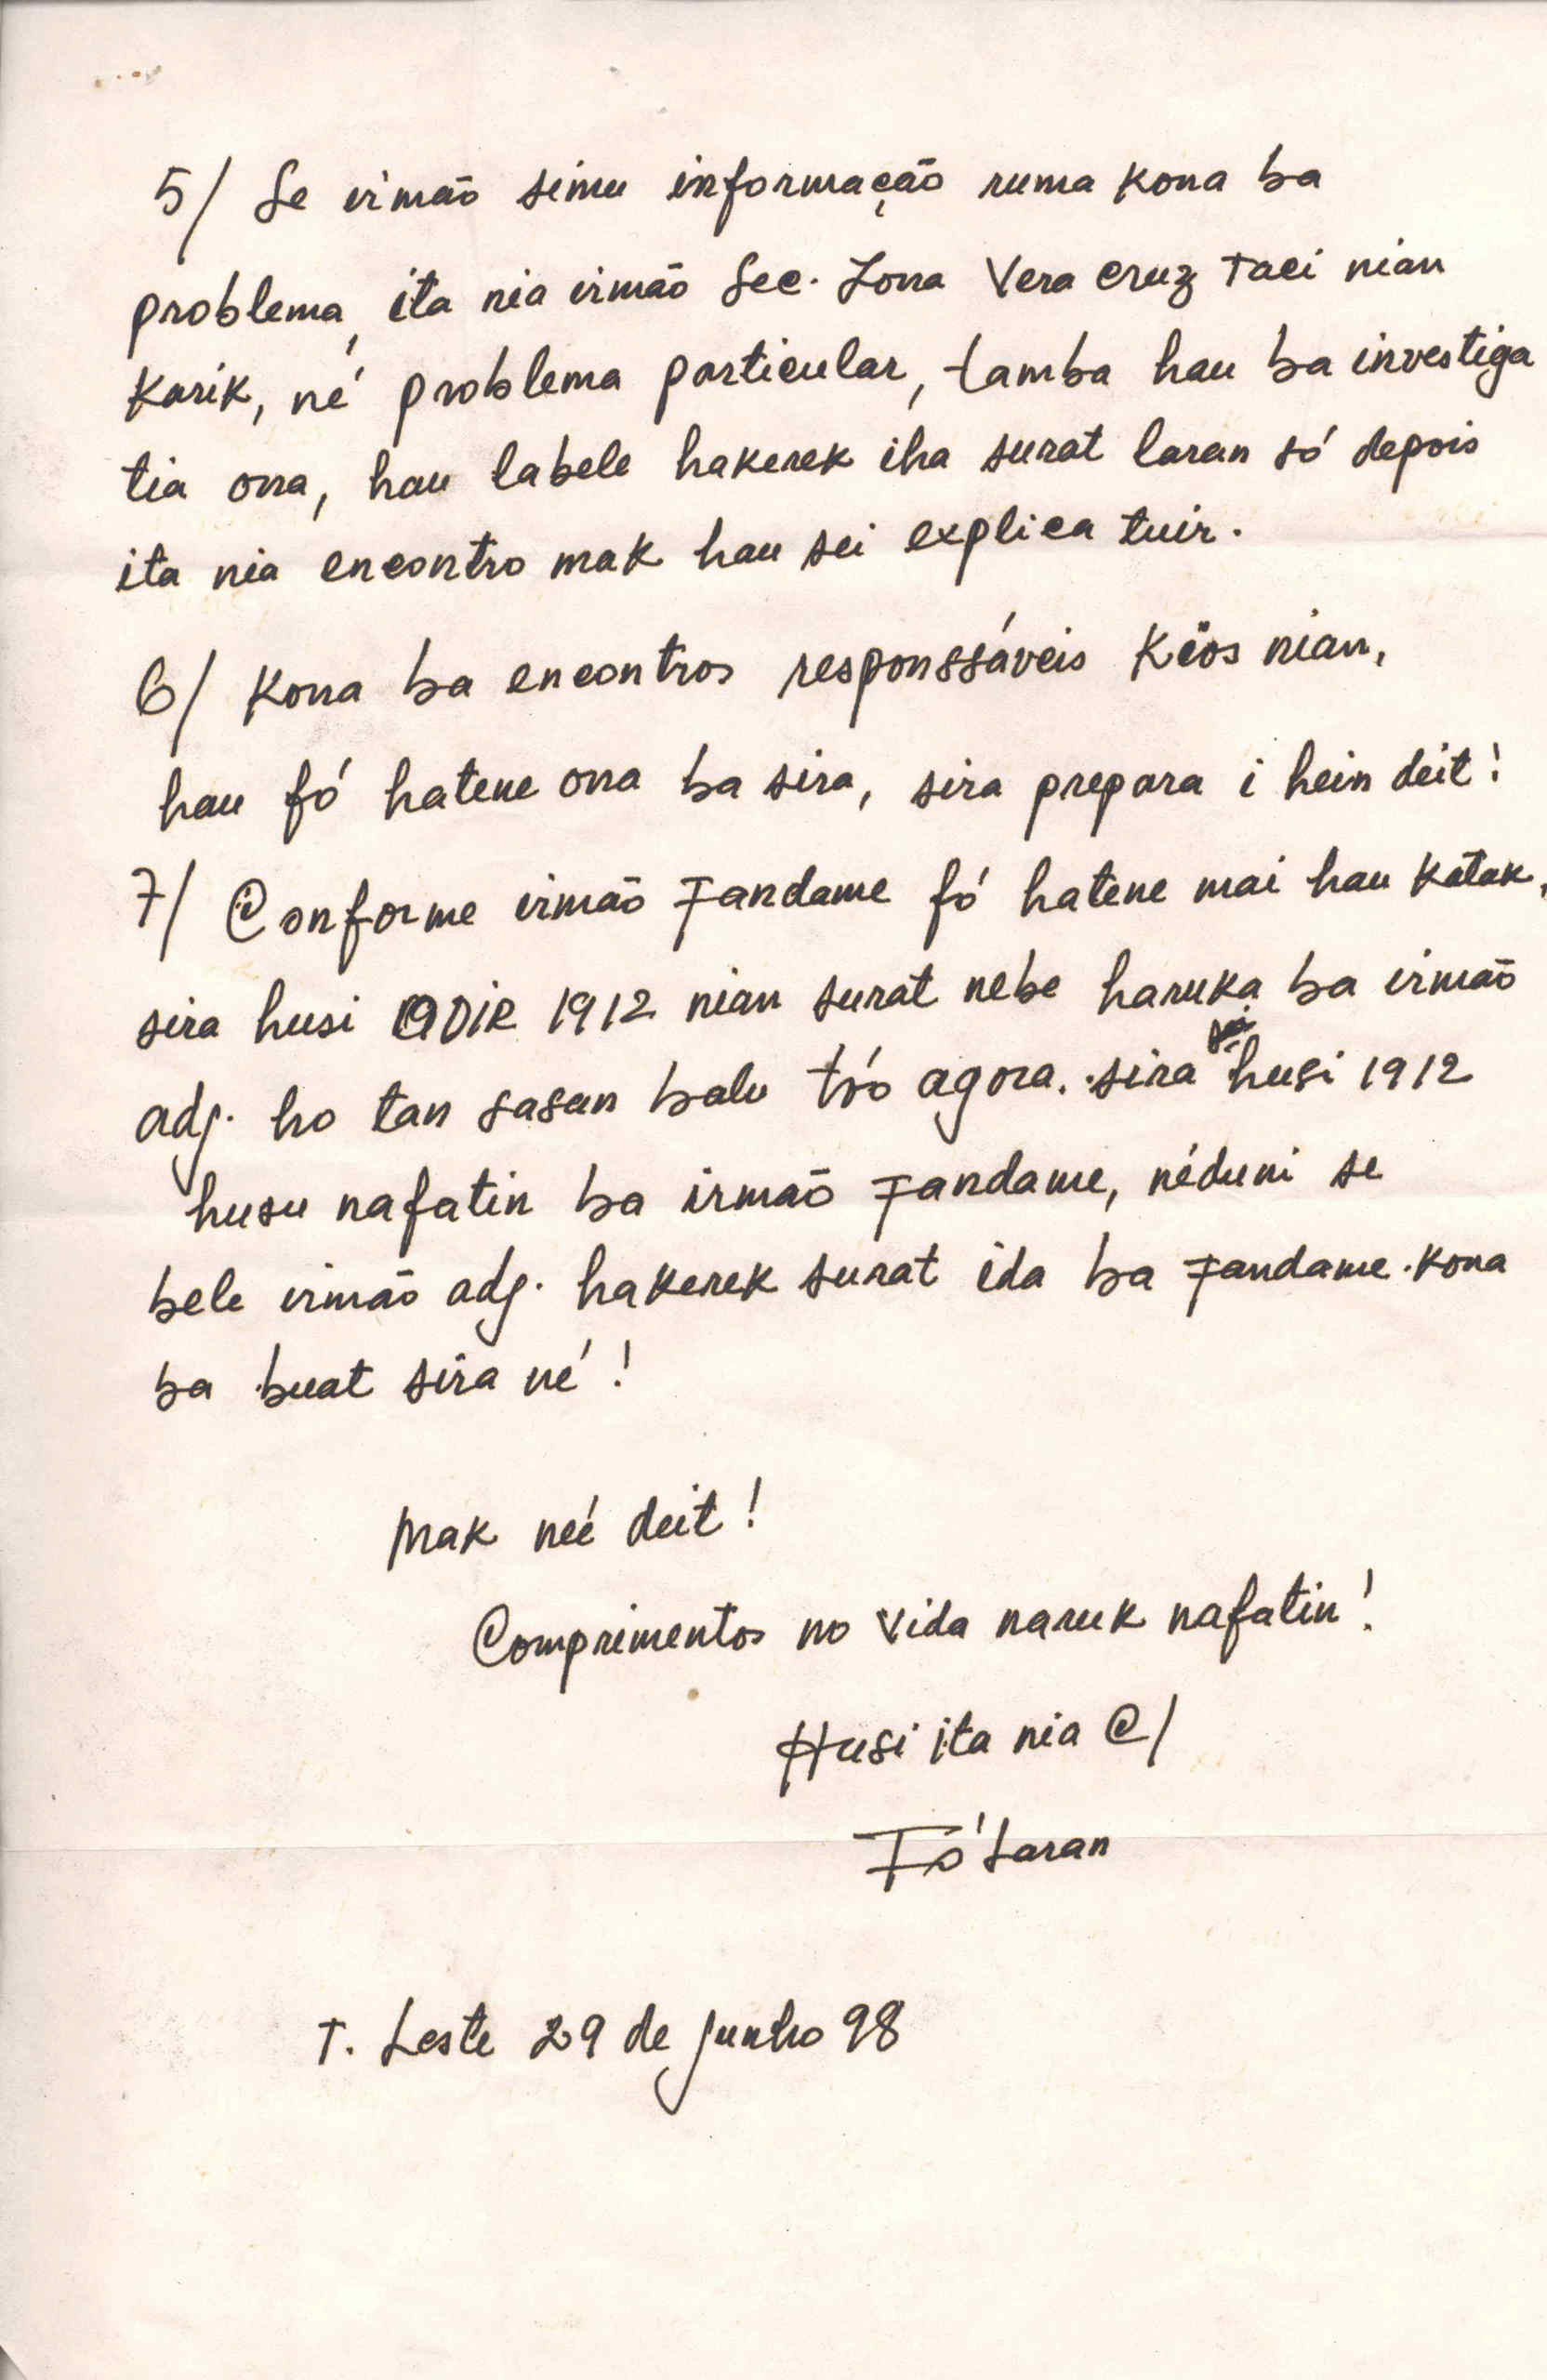 5/ Se irmão simu informação ruma kona ba
problema, ita nia irmão Sec. Zona Vera cruz Taci nian
karik, né problema particular, tamba hau ba investiga
tia ona, hau labele hakerek iha surat laran só depois
ita nia encontro mak hau sei explica tuir.
6/ Kona ba encontros responssáveis Këos nian,
hau fó hatene ona ba sira, sira prepara i hein deit!
7/ Conforme irmão Fandame fó hatene mai hau katak,
sira husi ODIR 1912 nian surat nebe haruka ba irmão
adj. ho tan sasan balu tó agora. sira sei husi 1912
husu nafatin ba irmão Fandame, néduni se
bele irmão adj. hakerek surat ida ba Fandame. kona
ba buat sira né!
Mak neé deit!
Comprimentos no vida naruk nafatin!
Husi ita nia C/
Fó Laran
T. Leste 29 de junho 98